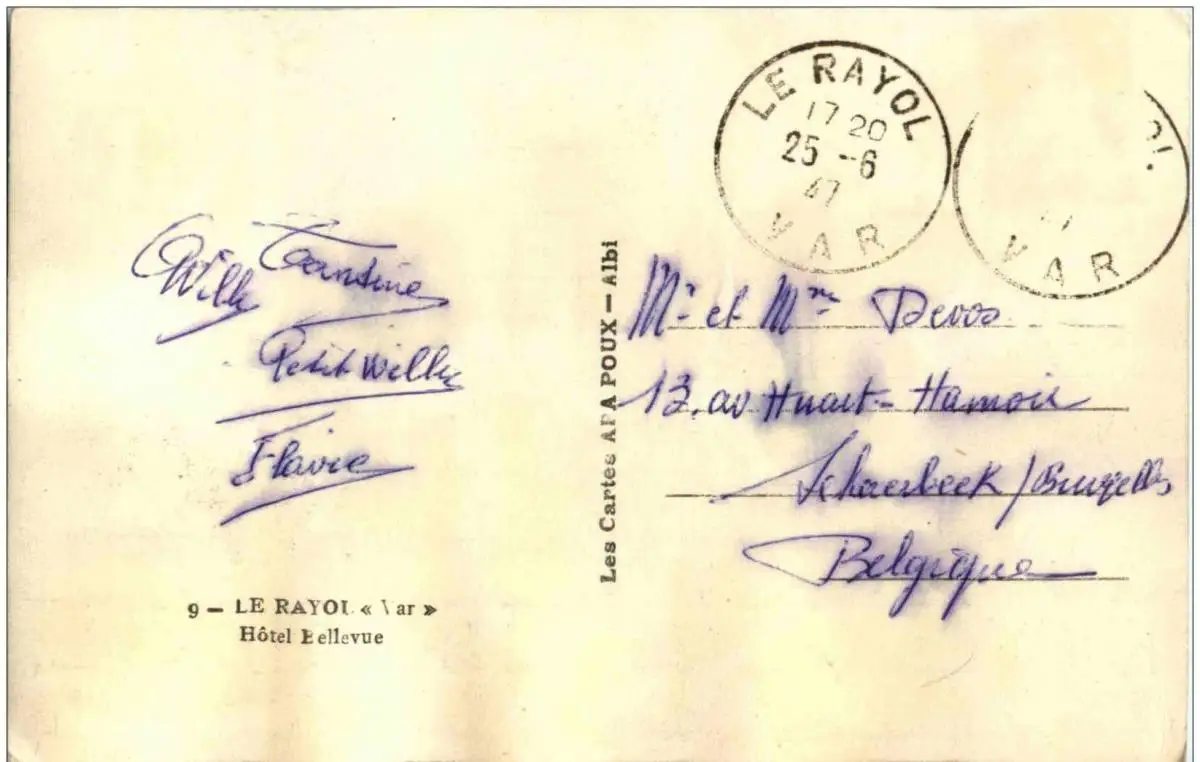 LE RAYOL
17 20
25 -6
47
VAR
VAR
Willy
Petit Willy
Flavie
Mr et Mme Devos
13, av Huart-Hamoir
Schaerbeek / Bruxelles
Belgique
Les Cartes APA POUX — Albi
9 — LE RAYOL « Var »
Hôtel Bellevue